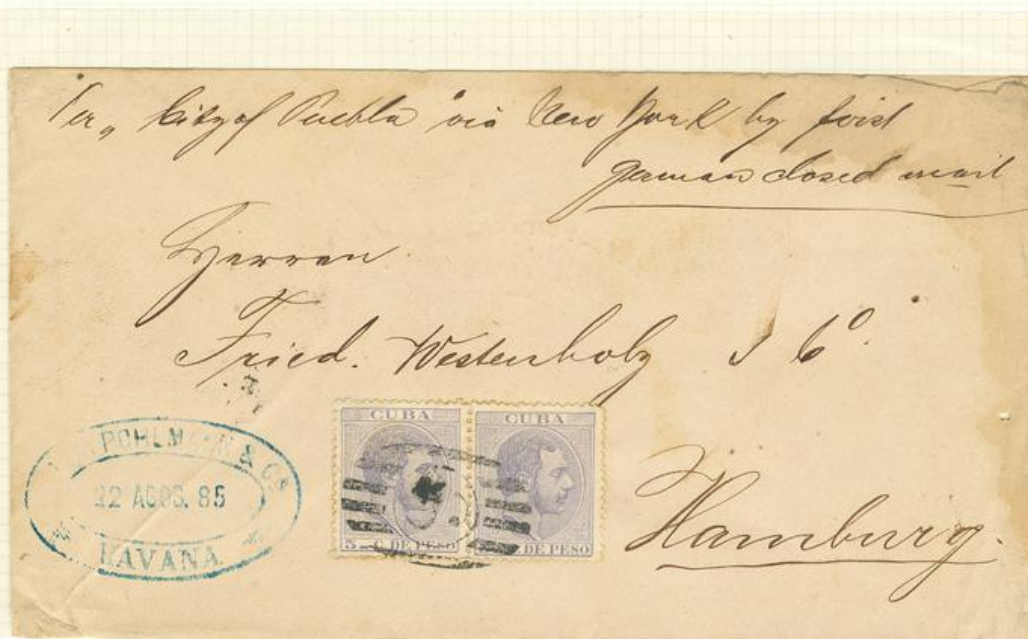 Per „City of Puebla" via New York by first
german closed mail
Herren
Fried. Westenholz & Cº.
CUBA CUBA
POHLMANN & Cº
12 AGOS. 85
HAVANA
5 C. DE PESO DE PESO
Hamburg.